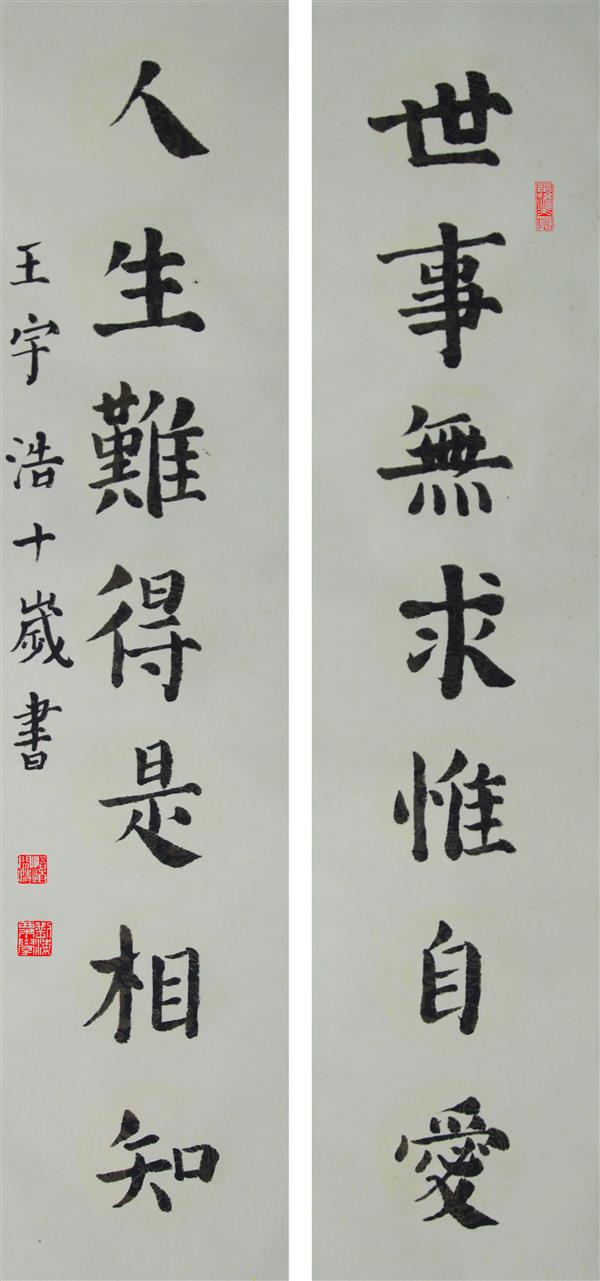 世事無求惟自愛
人生難得是相知
王宇浩十歲書